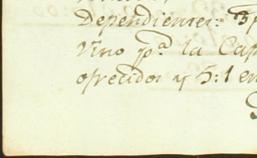 Dependientes: 3
Vino pª la Cap
ofrecidos y 5:1 en